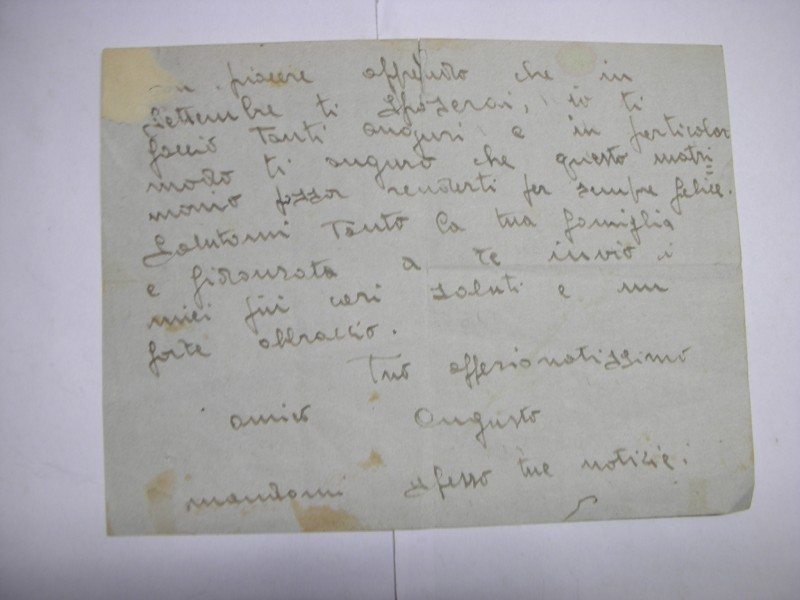 piacere apprendo che in
settembre ti sposerai, io ti
faccio tanti auguri e in particolar
modo ti auguro che questo matri
monio possa renderti per sempre felice.
Salutami tanto la tua famiglia
e fidanzata a te invio i
miei più cari saluti e un
forte abbraccio.
Tuo affezionatissimo
amico Augusto
mandami spesso tue notizie.